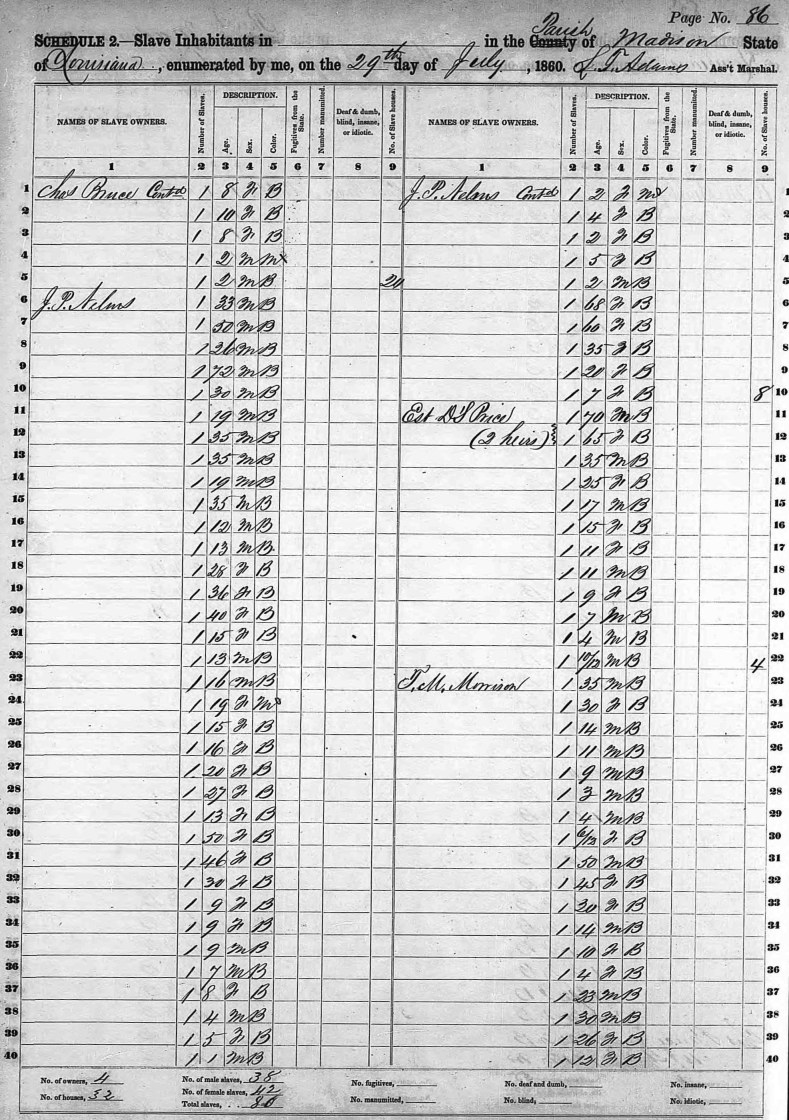 Page No. 86
Schedule 2.—Slave Inhabitants in in the County Parish of Madison State
of Louisiana, enumerated by me, on the 29th day of July, 1860. L. T. Adams Ass't Marshal.
NAMES OF SLAVE OWNERS. Number of Slaves. DESCRIPTION. Age. Sex. Color. Fugitives from the State. Number manumitted. Deaf & dumb, blind, insane, or idiotic. No. of Slave houses. NAMES OF SLAVE OWNERS. Number of Slaves. DESCRIPTION. Age. Sex. Color. Fugitives from the State. Number manumitted. Deaf & dumb, blind, insane, or idiotic. No. of Slave houses.
1 2 3 4 5 6 7 8 9 1 2 3 4 5 6 7 8 9
1 Chas Bruce Contd 1 8 F B J. P. Nelms Contd 1 2 F M 1
2 1 10 F B 1 4 F B 2
3 1 8 F B 1 2 F B 3
4 1 2 M M 1 5 F B 4
5 1 2 M B 20 1 2 M B 5
6 J. P. Nelms 1 33 M B 1 68 F B 6
7 1 50 M B 1 60 F B 7
8 1 26 M B 1 35 F B 8
9 1 72 M B 1 20 F B 9
10 1 30 M B 1 7 F B 8 10
11 1 19 M B Est D S Price 1 70 M B 11
12 1 35 M B (2 heirs) } 1 65 F B 12
13 1 35 M B 1 35 M B 13
14 1 19 M B 1 25 F B 14
15 1 35 M B 1 17 M B 15
16 1 12 M B 1 15 F B 16
17 1 13 M B 1 11 F B 17
18 1 28 F B 1 11 M B 18
19 1 36 F B 1 9 F B 19
20 1 40 F B 1 7 M B 20
21 1 15 F B 1 4 M B 21
22 1 13 M B 1 10/12 M B 4 22
23 1 16 M B T. M. Morrison 1 35 M B 23
24 1 19 F M 1 30 F B 24
25 1 15 F B 1 14 M B 25
26 1 16 F B 1 11 M B 26
27 1 20 F B 1 9 M B 27
28 1 27 F B 1 3 M B 28
29 1 13 F B 1 4 M B 29
30 1 50 F B 1 6/12 F B 30
31 1 46 F B 1 50 M B 31
32 1 30 F B 1 45 F B 32
33 1 9 F B 1 30 F B 33
34 1 9 F B 1 14 M B 34
35 1 9 M B 1 10 F B 35
36 1 7 M B 1 4 F B 36
37 1 8 F B 1 23 M B 37
38 1 4 M B 1 30 M B 38
39 1 5 F B 1 26 F B 39
40 1 1 M B 1 12 F B 40
No. of owners, 4 No. of male slaves, 38 No. fugitives, No. of deaf and dumb, No. of insane,
No. of houses, 32 No. of female slaves, 42 No. manumitted, No. of blind, No. of idiotic,
Total slaves, 80